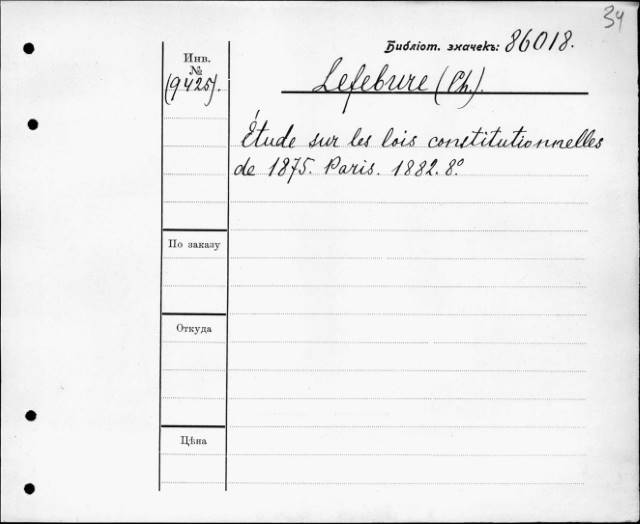 34
Библіот. значекъ: 86018.
Инв.
№
(9425).
Lefebure (Ch.).
Étude sur les lois constitutionnelles
de 1875. Paris. 1882. 8º
По заказу
Откуда
Цѣна